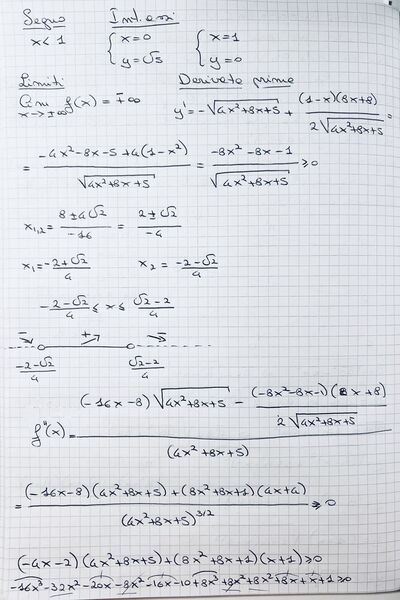 Segno Intersezioni
x < 1 { x=0 y=√5 { x=1 y=0
Limiti Derivate prime
lim x→±∞ f(x) = ∓∞ y' = -√(4x²+8x+5) + (1-x)(8x+8) / 2√(4x²+8x+5) =
= -4x²-8x-5+4(1-x²) / √(4x²+8x+5) = -8x²-8x-1 / √(4x²+8x+5) ≥ 0
x₁,₂ = 8±4√2 / -16 = 2±√2 / -4
x₁ = -2+√2 / 4 x₂ = -2-√2 / 4
-2-√2 / 4 ≤ x ≤ √2-2 / 4
- + -
-2-√2 / 4 √2-2 / 4
f''(x) = (-16x-8)√(4x²+8x+5) - (-8x²-8x-1)(8x+8) / 2√(4x²+8x+5) / (4x²+8x+5)
= (-16x-8)(4x²+8x+5)+(8x²+8x+1)(4x+4) / (4x²+8x+5)^3/2 ≥ 0
(-4x-2)(4x²+8x+5)+(8x²+8x+1)(x+1) ≥ 0
-16x³-32x²-20x-8x²-16x-10+8x³+8x²+8x²+8x+x+1 ≥ 0